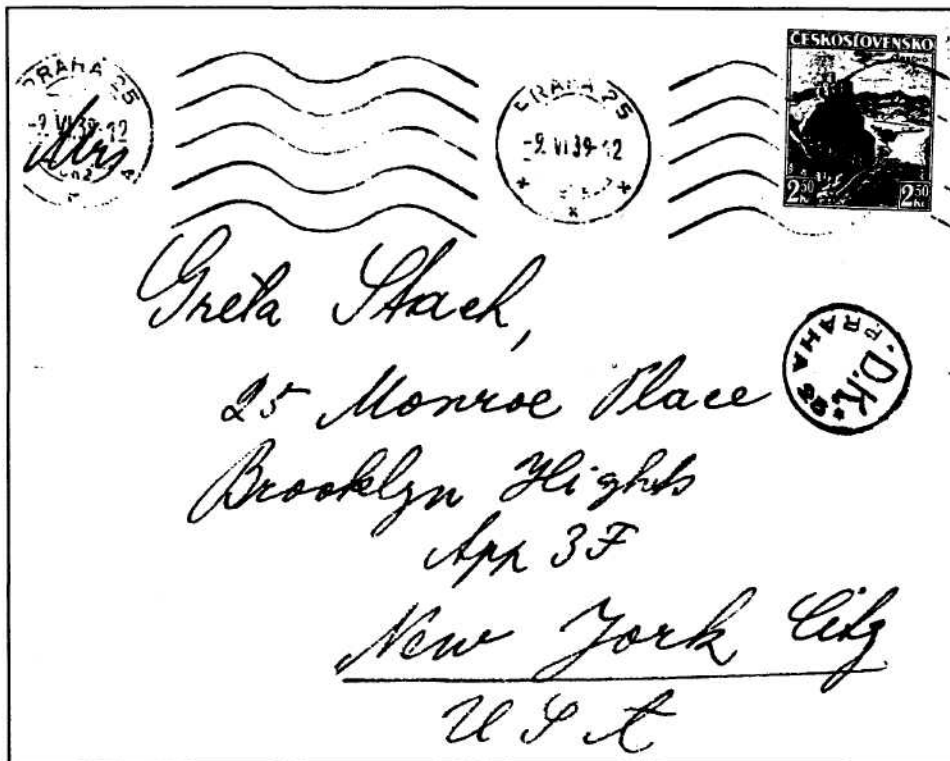 PRAHA 25
-9.VI.39-12
Mrs
PRAHA 25
-9.VI.39-12
ČESKOSLOVENSKO
2 50 2 50
Greta Stach,
25 Monroe Place
Brooklyn Hights
App 3F
New York City
U S A
PRAHA 25
D.K.